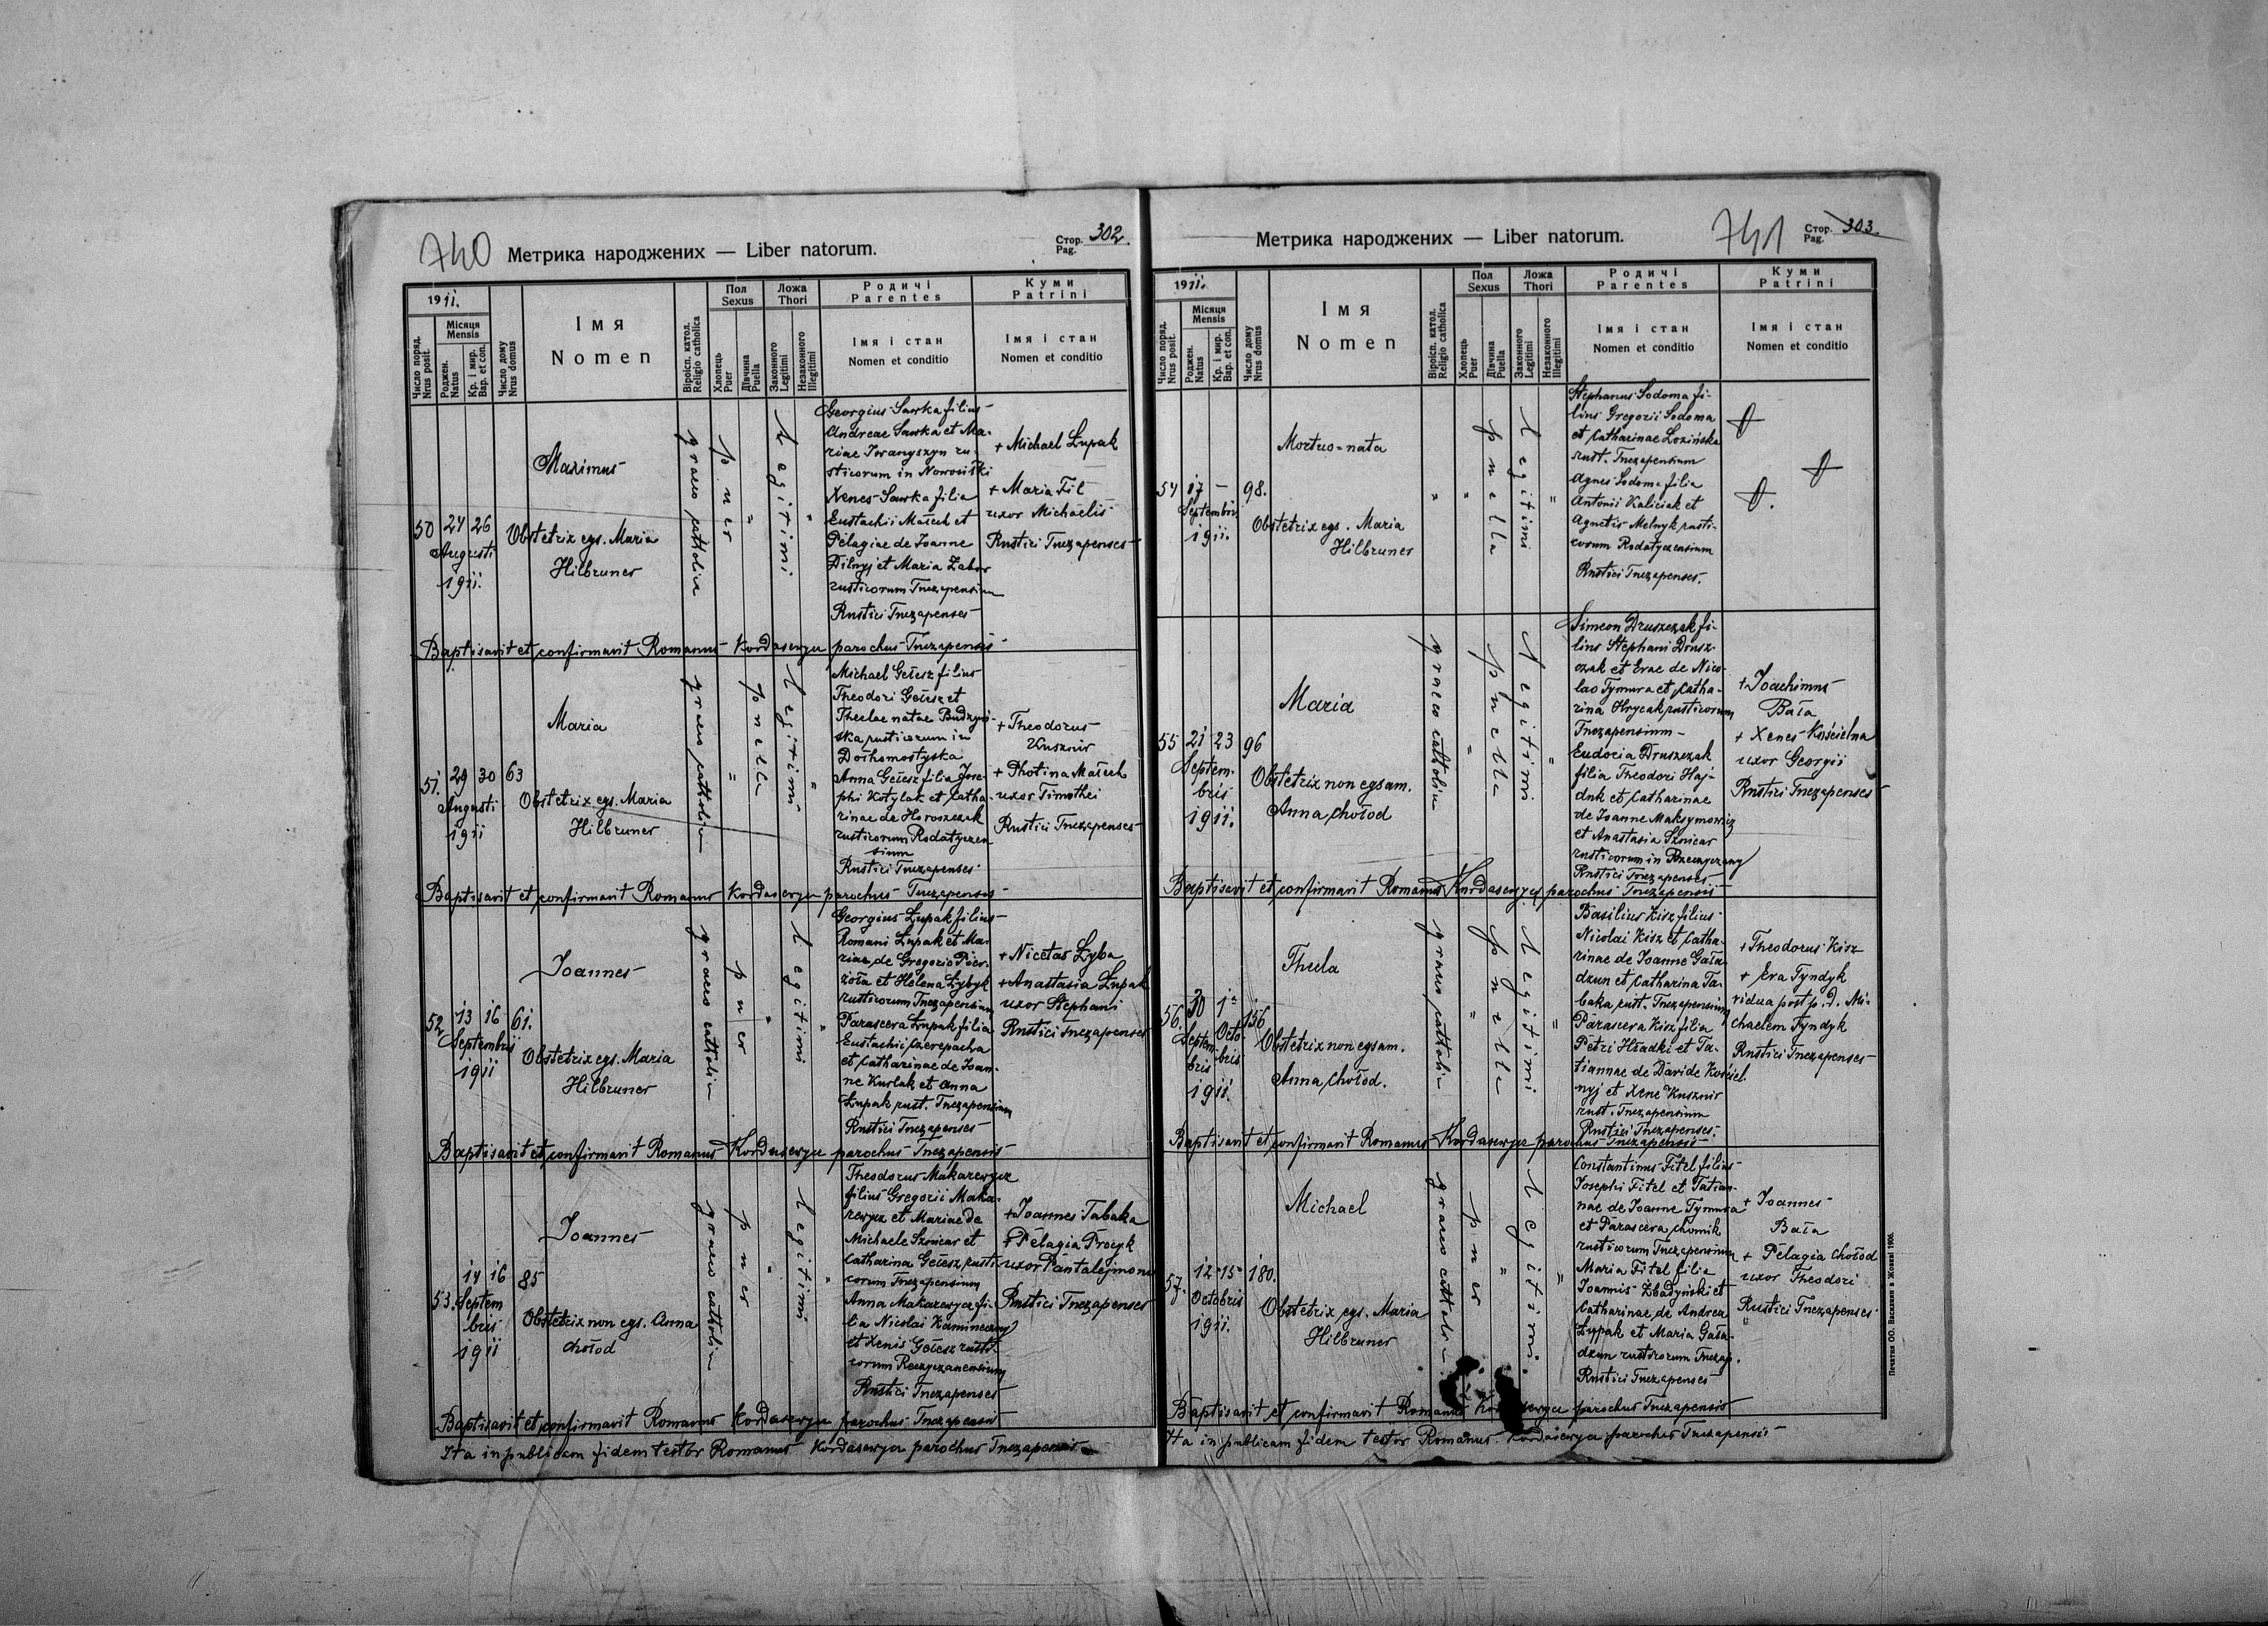 740 Метрика народжених — Liber natorum. Стор. Pag. 302.
1911.
Місяця Mensis
Число поряд. Nrus posit.
Роджен. Natus
Кр. і мир. Bap. et con.
Число дому Nrus domus
Імя Nomen
Віроісп. катол. Religio catholica
Пол Sexus
Хлопець Puer
Дївчина Puella
Ложа Thori
Законного Legitimi
Незаконного Illegitimi
Родичі Parentes
Імя і стан Nomen et conditio
Куми Patrini
Імя і стан Nomen et conditio
50 24 26
Augusti
1911.
Maximus
Obstetrix egs. Maria
Hilbruner
graeco catholica
puer
"
legitimi
"
Georgius Sawka filius
Andreae Sawka et Ma-
riae Iwanyszyn ru-
sticorum in Nowosiłki
Xenes Sawka filia
Eustachii Małech et
Pelagiae de Joanne
Dilnyj et Maria Zabor
rusticorum Tuczapensium
Rustici Tuczapenses
+ Michael Łupak
+ Maria Fil
uxor Michaelis
Rustici Tuczapenses
Baptisavit et confirmavit Romanus Kordasewycz parochus Tuczapensis
51. 29 30 63
Augusti
1911
Maria
Obstetrix egs. Maria
Hilbruner
graeco catholica
"
puella
legitimi
"
Michael Gełesz filius
Theodori Gełesz et
Theclae natae Budzyń-
ska rusticorum in
Dołhomostyska
Anna Gełesz filia Jose-
phi Kotylak et Catha-
rinae de Horoszczak
rusticorum Rodatyczen
sium
Rustici Tuczapenses
+ Theodorus
Kusznir
+ Photina Małech
uxor Timothei
Rustici Tuczapenses
Baptisavit et confirmavit Romanus Kordasewycz parochus Tuczapensis
52. 13 16 61.
Septembris
1911
Joannes
Obstetrix egs. Maria
Hilbruner
graeco catholica
puer
"
legitimi
"
Georgius Łupak filius
Romani Łupak et Ma-
riae de Gregorio Pier-
zoła et Helena Łybyk
rusticorum Tuczapensium
Parascera Łupak filia
Eustachii Czerepacha
et Catharinae de Joan-
ne Kurlak et Anna
Łupak rust. Tuczapensium
Rustici Tuczapenses
+ Nicetas Łyba
+ Anastasia Łupak
uxor Stephani
Rustici Tuczapenses
Baptisavit et confirmavit Romanus Kordasewycz parochus Tuczapensis
53. 14 16 85
Septem
bris
1911
Joannes
Obstetrix non egs. Anna
Chołod
graeco catholica
puer
"
legitimi
"
Theodorus Makarewycz
filius Gregorii Maka-
rewycz et Mariae de
Michaele Sznicar et
Catharina Gełesz rusti-
corum Tuczapensium
Anna Makarewycz fi-
lia Nicolai Kamineczny
et Xenis Gełesz rusti-
corum Reczyczanensium
Rustici Tuczapenses
+ Joannes Tabaka
+ Pelagia Procyk
uxor Pantalejmonis
Rustici Tuczapenses
Baptisavit et confirmavit Romanus Kordasewycz parochus Tuczapensis
Ita in publicam fidem testor Romanus Kordasewycz parochus Tuczapensis
Метрика народжених — Liber natorum. 741 Стор. Pag. 303.
1911.
Місяця Mensis
Число поряд. Nrus posit.
Роджен. Natus
Кр. і мир. Bap. et con.
Число дому Nrus domus
Імя Nomen
Віроісп. катол. Religio catholica
Пол Sexus
Хлопець Puer
Дївчина Puella
Ложа Thori
Законного Legitimi
Незаконного Illegitimi
Родичі Parentes
Імя і стан Nomen et conditio
Куми Patrini
Імя і стан Nomen et conditio
54 17 — 98.
Septembris
1911.
Mortuo-nata
Obstetrix egs. Maria
Hilbruner
"
"
puella
legitimi
"
Stephanus Sodoma fi-
lius Gregorii Sodoma
et Catharinae Łozińska
rust. Tuczapensium
Agnes Sodoma filia
Antonii Kaliciak et
Agnetis Melnyk rusti-
corum Rodatyczensium
Rustici Tuczapenses.
55 21 23 96
Septem-
bris
1911.
Maria
Obstetrix non egsam.
Anna Chołod
graeco catholica
"
puella
legitimi
"
Simeon Druszczak fi-
lius Stephani Drusz-
czak et Evae de Nico-
lao Tymura et Catha-
rina Hrycak rusticorum
Tuczapensium
Eudocia Druszczak
filia Theodori Haj-
duk et Catharinae
de Joanne Maksymowicz
et Anastasia Sznicar
rusticorum in Rzeczyczany
Rustici Tuczapenses
+ Joachimus
Bała
+ Xenes Kościelna
uxor Georgii
Rustici Tuczapenses
Baptisavit et confirmavit Romanus Kordasewycz parochus Tuczapensis
56. 30 1 156
Septem-
bris
Octo-
bris
1911.
Thecla
Obstetrix non egsam.
Anna Chołod.
graeco catholica
"
puella
legitimi
"
Basilius Kisz filius
Nicolai Kisz et Catha-
rinae de Joanne Gała-
dzun et Catharina Ta-
baka rust. Tuczapensium
Parascera Kisz filia
Petri Hładki et Ta-
tiannae de Davide Kościel-
nyj et Xene Kusznir
rust. Tuczapensium
Rustici Tuczapenses.
+ Theodorus Kisz
+ Eva Tyndyk
vidua post p. d. Mi-
chaelem Tyndyk
Rustici Tuczapenses
Baptisavit et confirmavit Romanus Kordasewycz parochus Tuczapensis
57. 12 15 180.
Octobris
1911.
Michael
Obstetrix egs. Maria
Hilbruner
graeco catholica
puer
"
legitimi
"
Constantinus Fitel filius
Josephi Fitel et Tatian-
nae de Joanne Tymura
et Parascera Chomik
rusticorum Tuczapensium
Maria Fitel filia
Joannis Zbadyński et
Catharinae de Andrea
Łupak et Maria Gała-
dzun rusticorum Tuczap.
Rustici Tuczapenses
+ Joannes
Bała
+ Pelagia Chołod
uxor Theodori
Rustici Tuczapenses
Baptisavit et confirmavit Romanus parochus Tuczapensis
Ita in publicam fidem testor Romanus Kordasewycz parochus Tuczapensis
Печатня ОО. Василиян в Жовкві 1906.